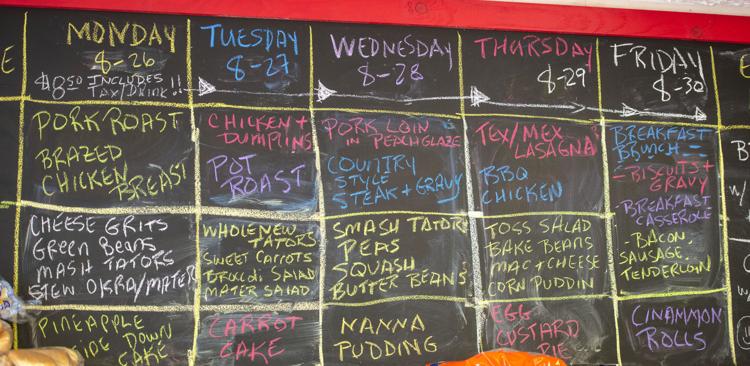 MONDAY
8-26
$8.50 INCLUDES
TAX/DRINK!!
PORK ROAST
BRAZED
CHICKEN BREAST
CHEESE GRITS
GREEN BEANS
MASH TATORS
STEW OKRA/MATER
PINEAPPLE
SIDE DOWN
CAKE
TUESDAY
8-27
CHICKEN +
DUMPLINS
POT
ROAST
WHOLE NEW
TATORS
SWEET CARROTS
BROCOLI SALAD
MATER SALAD
CARROT
CAKE
WEDNESDAY
8-28
PORK LOIN
IN PEACH GLAZE
COUNTRY
STYLE
STEAK + GRAVY
SMASH TATORS
PEAS
SQUASH
BUTTER BEANS
NANNA
PUDDING
THURSDAY
8-29
TEX/MEX
LASAGNA
BBQ
CHICKEN
TOSS SALAD
BAKE BEANS
MAC + CHEESE
CORN PUDDIN
EGG
CUSTARD
PIE
FRIDAY
8-30
BREAKFAST
BRUNCH -
- BISCUITS +
GRAVY
- BREAKFAST
CASSEROLE
- BACON,
SAUSAGE,
TENDERLOIN
CINAMMON
ROLLS